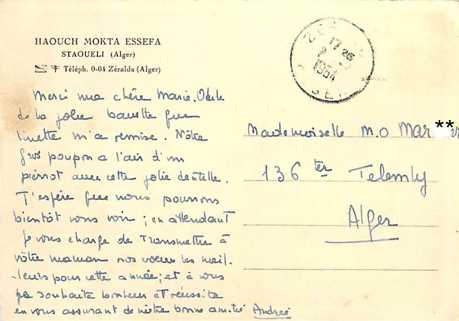 HAOUCH MOKTA ESSEFA
STAOUELI (Alger)
Téléph. 0-04 Zéralda (Alger)
17 25
1954
Merci ma chère Marie-Odile
de la jolie bavette que
Ginette m'a remise. Nôtre
gros poupon a l'air d'un
pierrot avec cette jolie dentelle.
J'espère que nous pourrons
bientôt vous voir ; en attendant
je vous charge de transmettre à
vôtre maman nos voeux les meil-
leurs pour cette année; et à vous
je souhaite bonheur et réussite
en vous assurant de nôtre bonne amitié Andrée
Mademoiselle M.O Mar**
136 ter Telemly
Alger